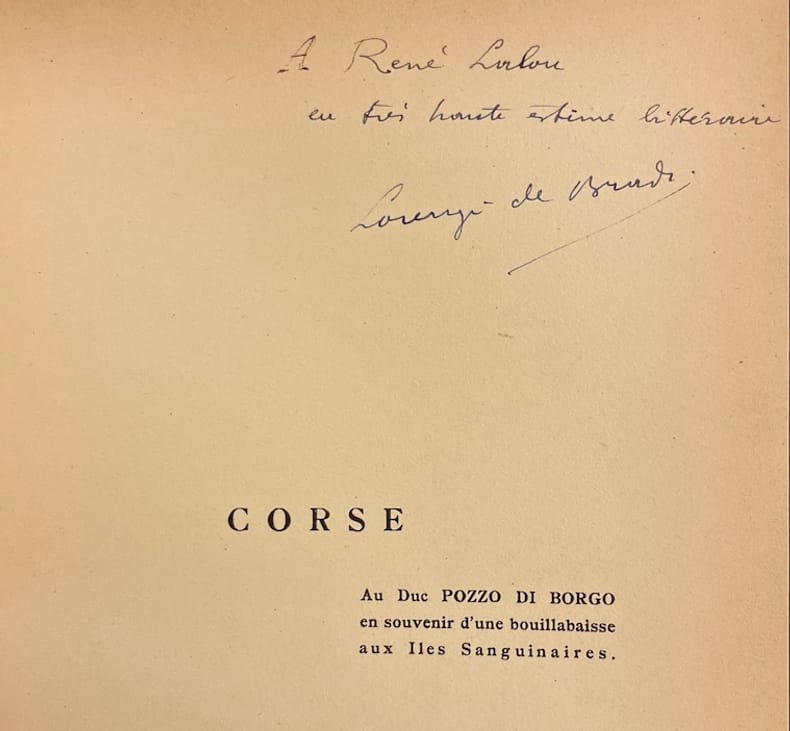 A René Lalou
en très haute estime littéraire
Lorenzi de Bradi.
CORSE
Au Duc POZZO DI BORGO
en souvenir d'une bouillabaisse
aux Iles Sanguinaires.